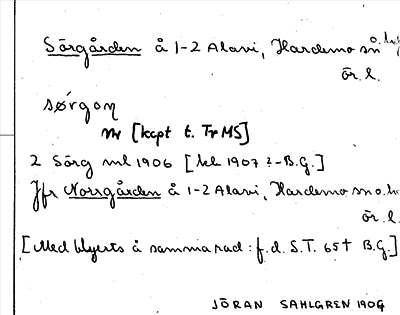 Sörgården å 1-2 Alavi, Hardemo sn o. hd
ör. l.
sørgon
nr [kapt t. Tr MS]
2 Sörg ml 1906 [kl 1907 ?-B.G.]
Jfr Norrgården å 1-2 Alavi, Hardemo sn o. hd
ör. l.
[Med blyerts å samma rad: f.d. S.T. 65+ B.G.]
JÖRAN SAHLGREN 1906